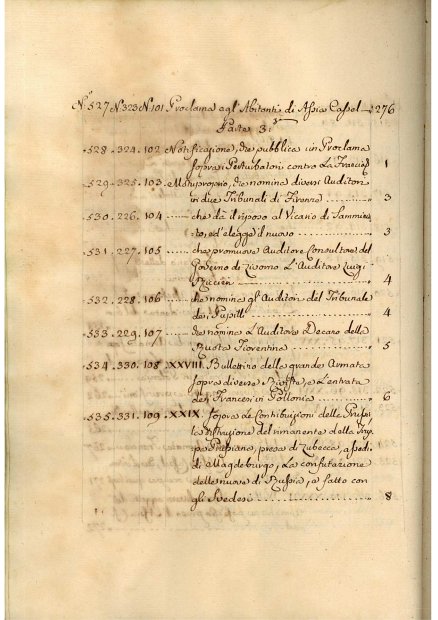 N.° 527 N. 323 N. 101 Proclama agl' Abitanti di Assia Cassel — 276
Parte 3.ª
528 . 324 . 102 Notificazione, che pubblica un Proclama
sopra i Perturbatori contro La Francia 1
529 . 325 . 103 . Motuproprio, che nomina diversi Auditori
in due Tribunali di Firenze .......... 3
530 . 226 . 104 —— che dà il riposo al Vicario di Sammin=
to, ed elegge il nuovo .......... 3
531 . 227 . 105 —— che promuove Auditore Consultore del
Governo di Livorno L'Auditore Luigi
.......... 4
532 . 228 . 106 —— che nomina gl' Auditori del Tribunale
de' Pupilli .......... 4
533 . 229 . 107 —— che nomina L'Auditore Decano della
Ruota Fiorentina .......... 5
534 . 330 . 108 . XXVIII. Bullettino della grande Armata
sopra diverse , e L'entrata
de' Francesi in Pollonia .......... 6
535 . 331 . 109 . XXIX. sopra Le Contribuzioni della
distruzione del rimanente della
pa Prussiana, presa di Lubecca, assedio
di Magdeburgo, La confutazione
delle nuove di Russia, e fatto con
gli Svedesi .......... 8